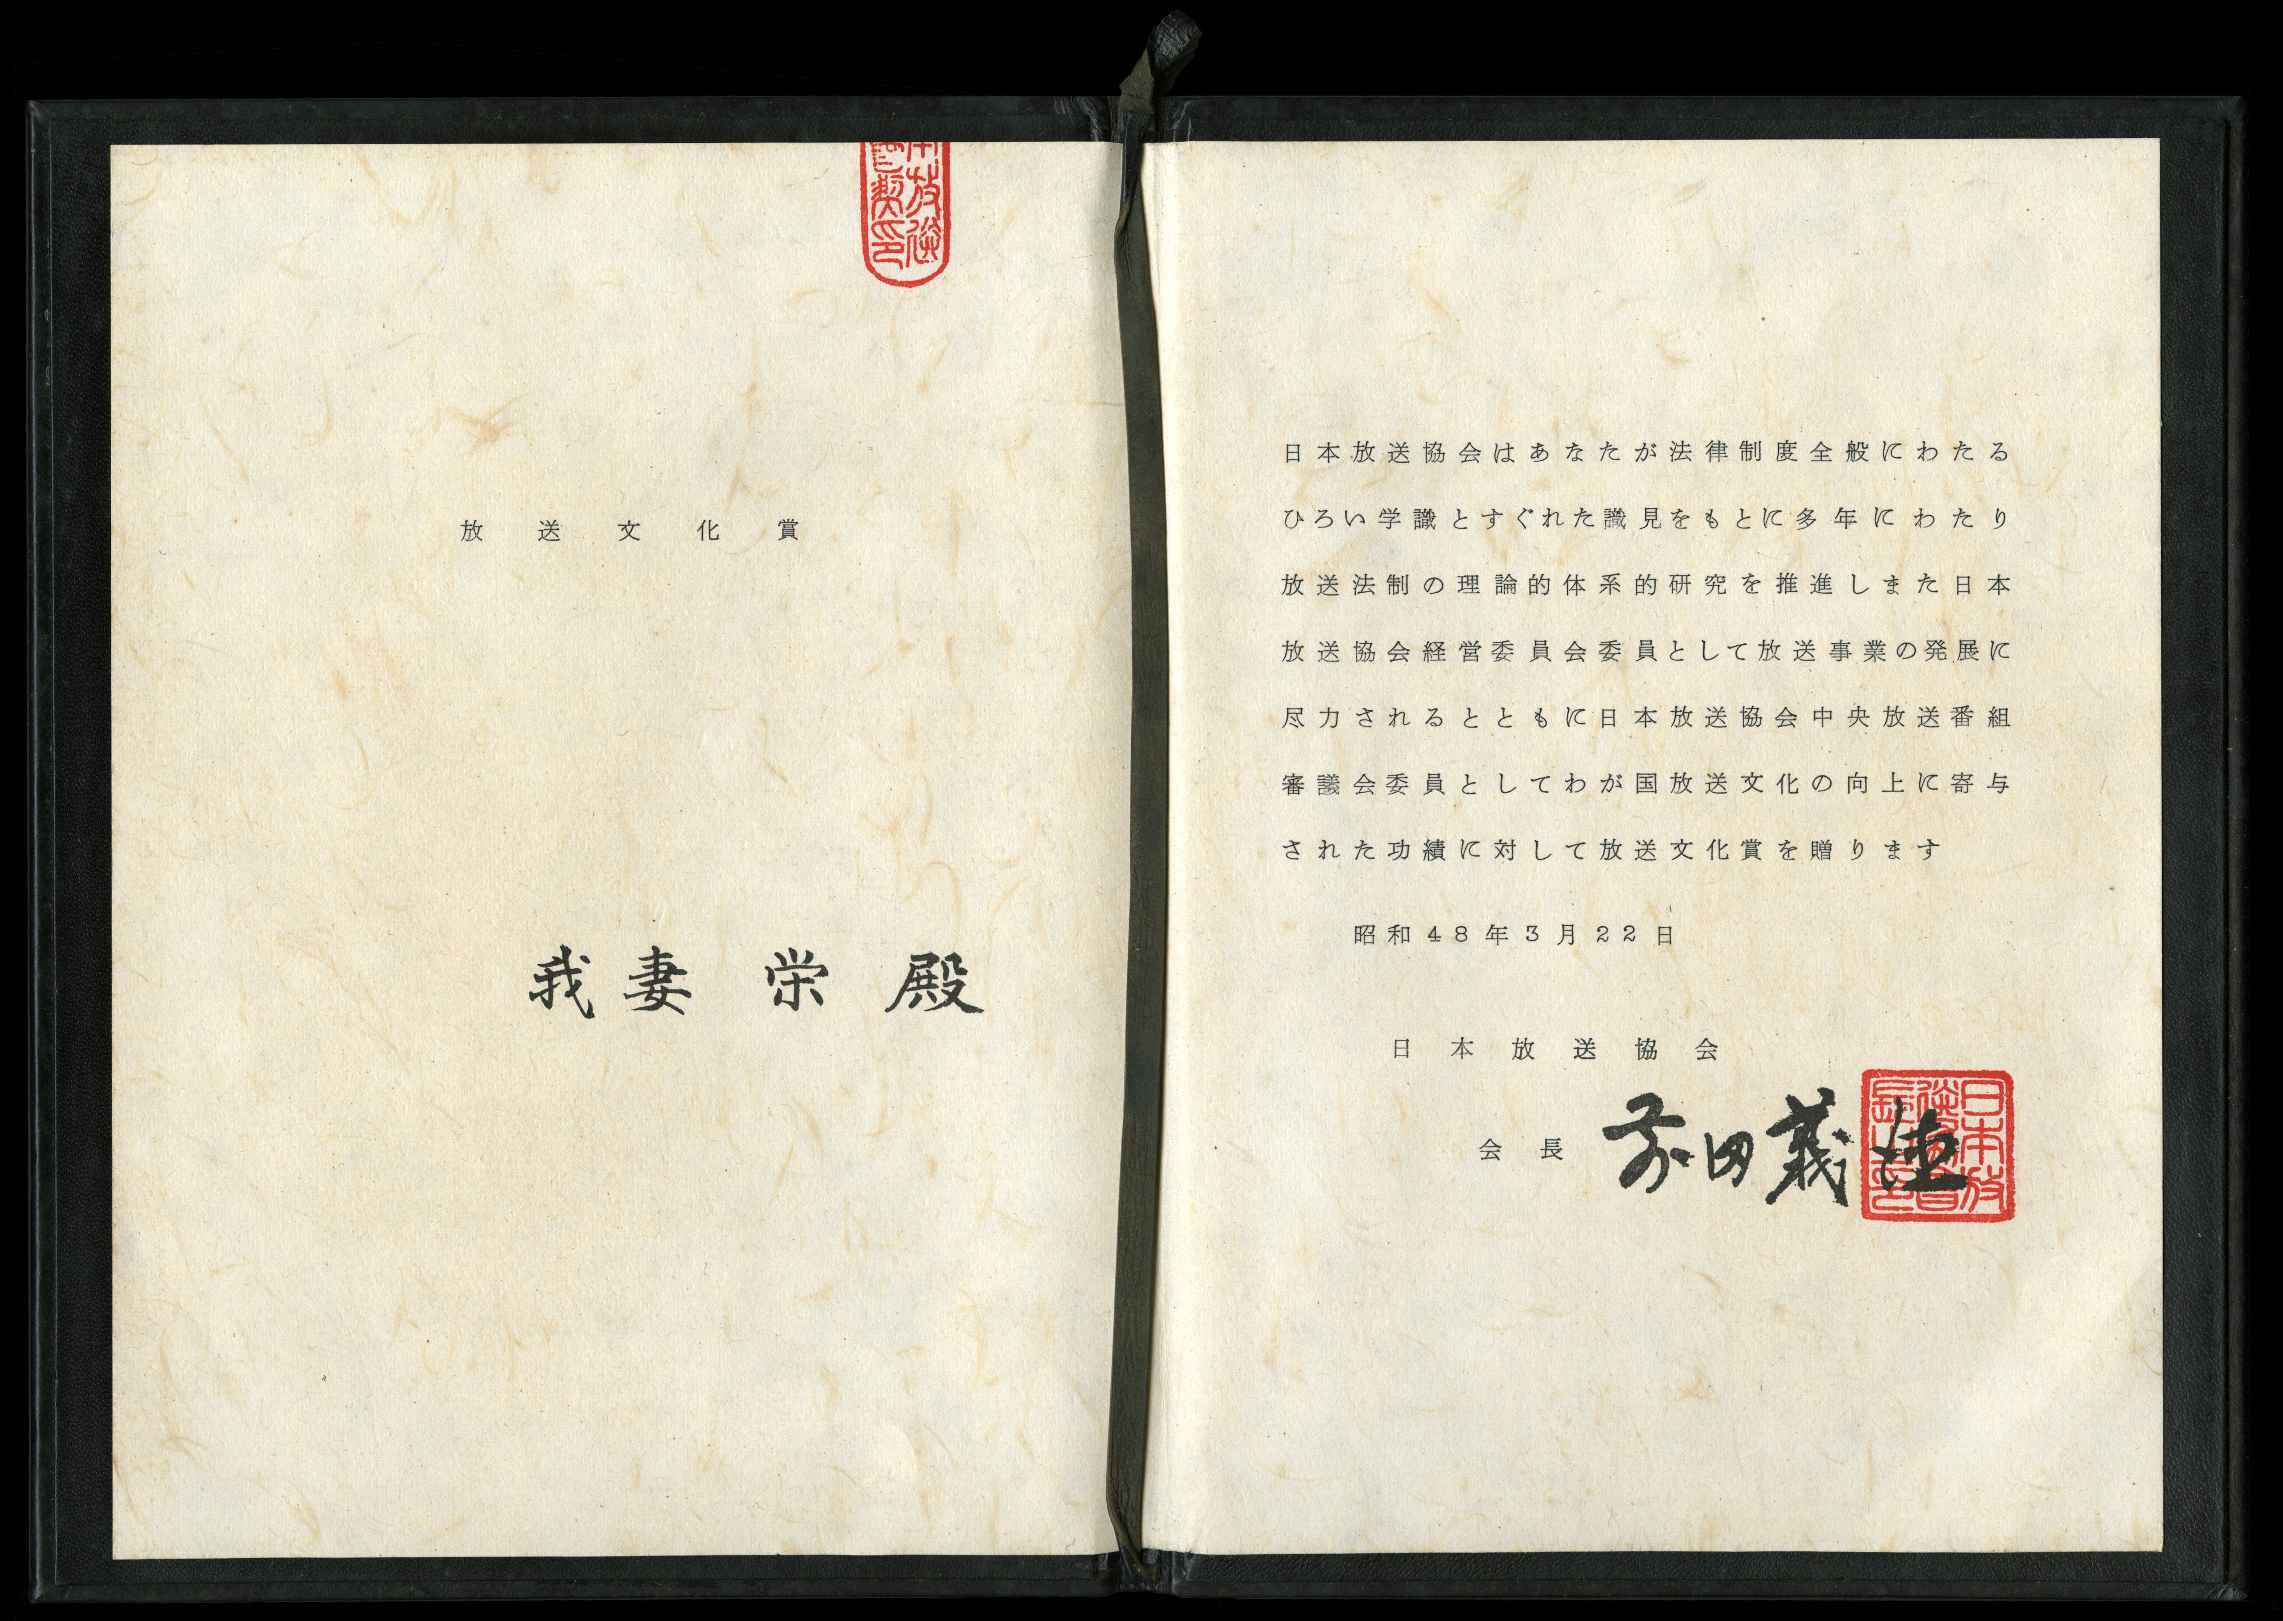 放送文化賞
我妻 栄 殿
日本放送協会はあなたが法律制度全般にわたる
ひろい学識とすぐれた識見をもとに多年にわたり
放送法制の理論的体系的研究を推進しまた日本
放送協会経営委員会委員として放送事業の発展に
尽力されるとともに日本放送協会中央放送番組
審議会委員としてわが国放送文化の向上に寄与
された功績に対して放送文化賞を贈ります
昭和48年3月22日
日本放送協会
会長 前田義徳